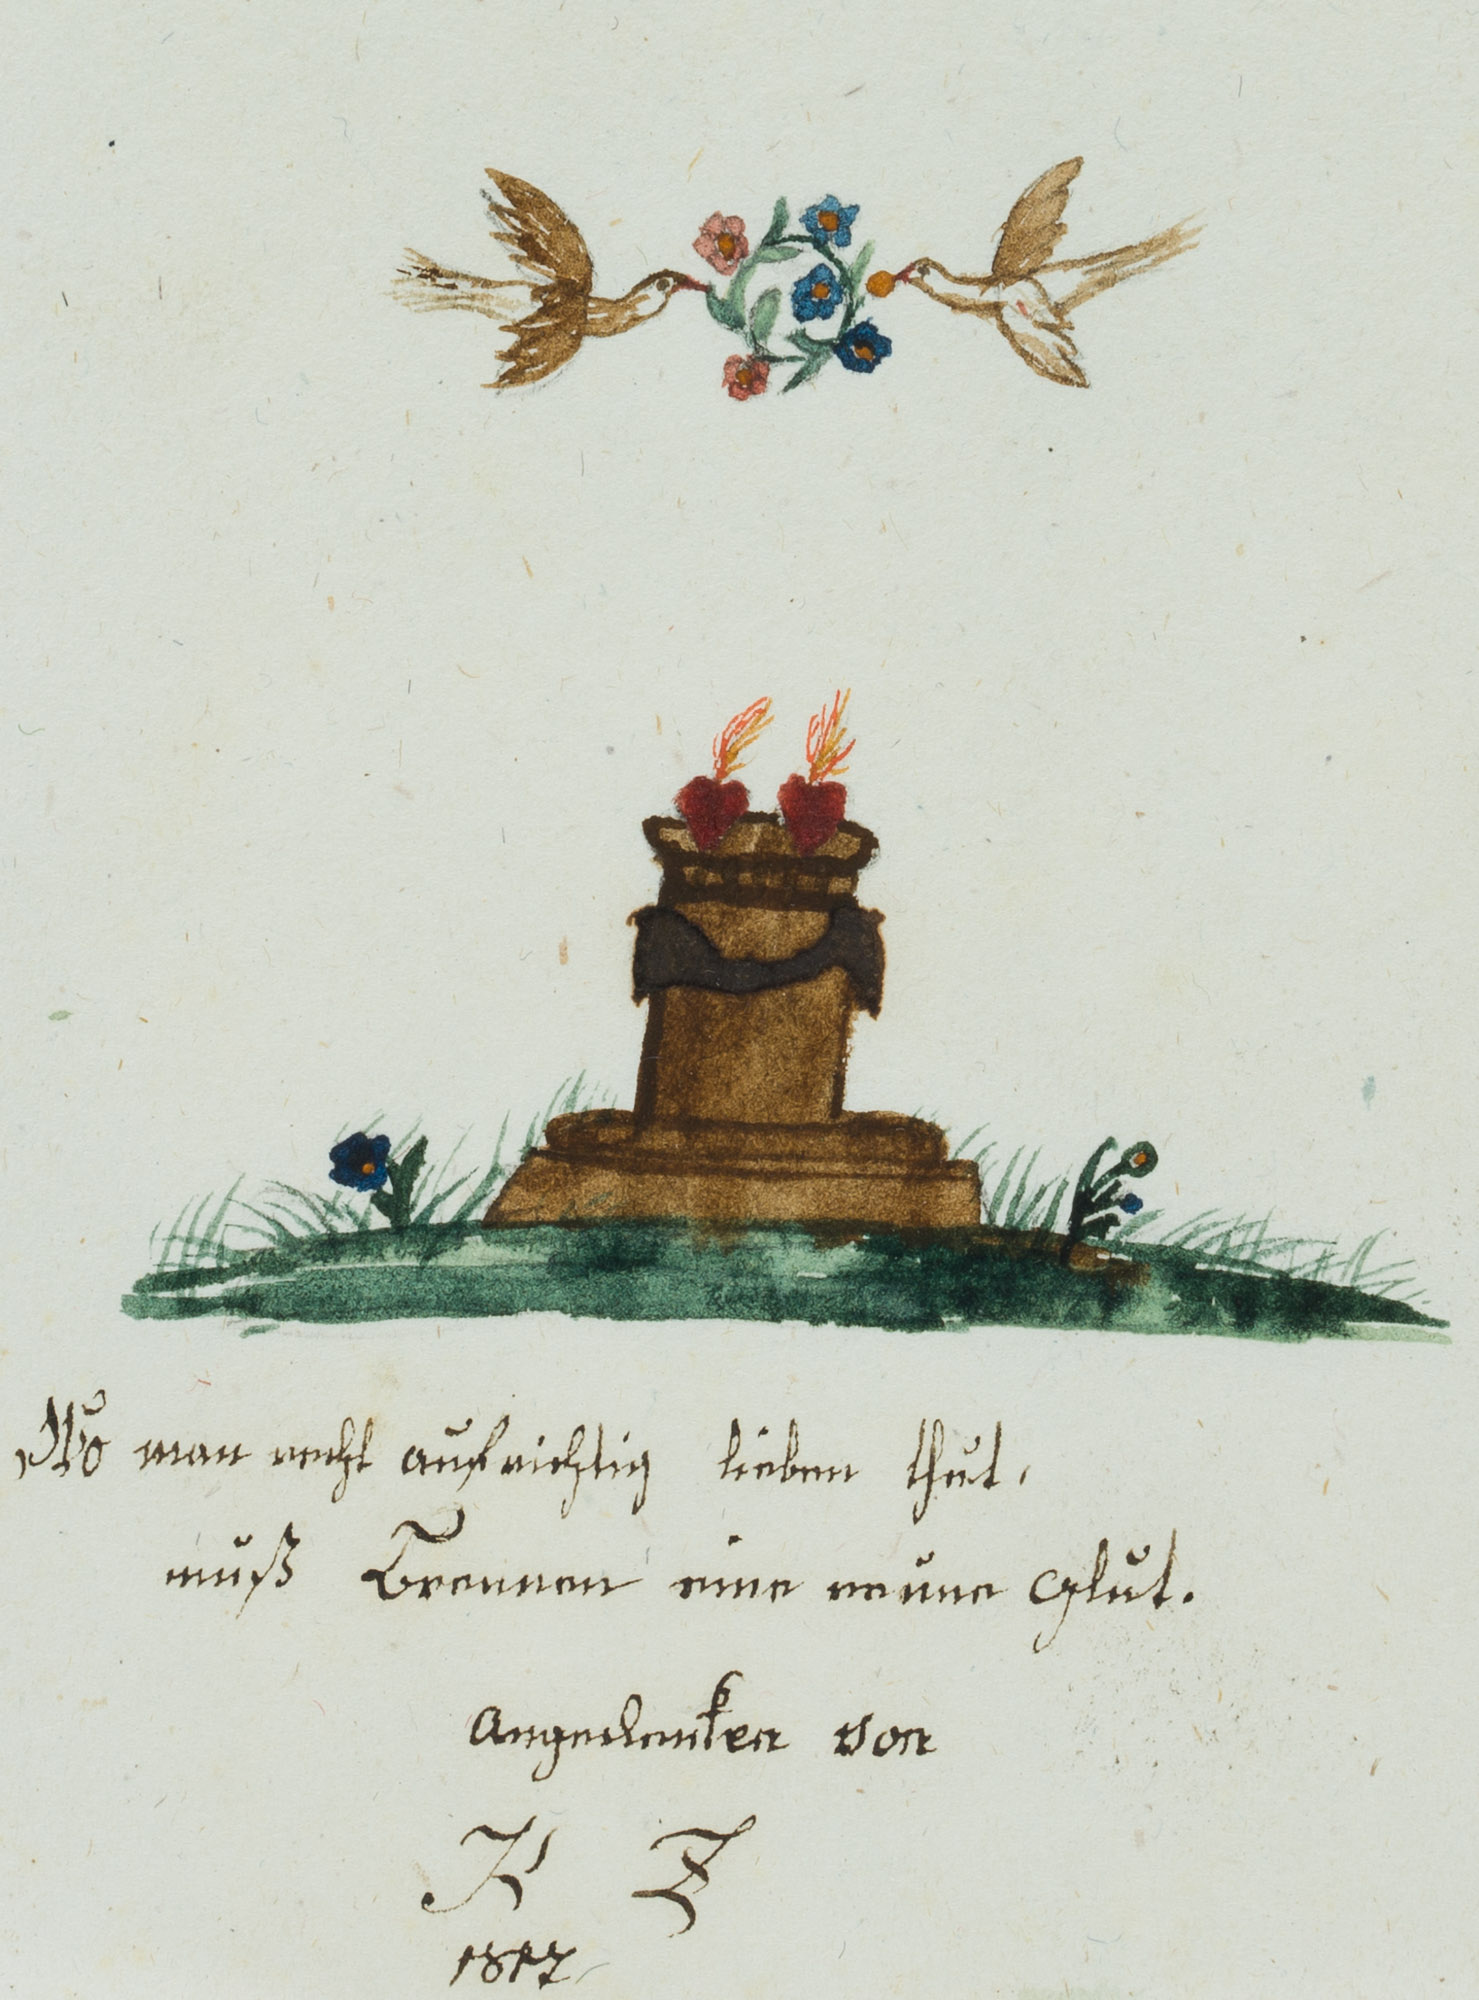 Wo man recht aufrichtig lieben thut,
muß Brennen eine neune Glut.
Angedenken von
K Z
1817